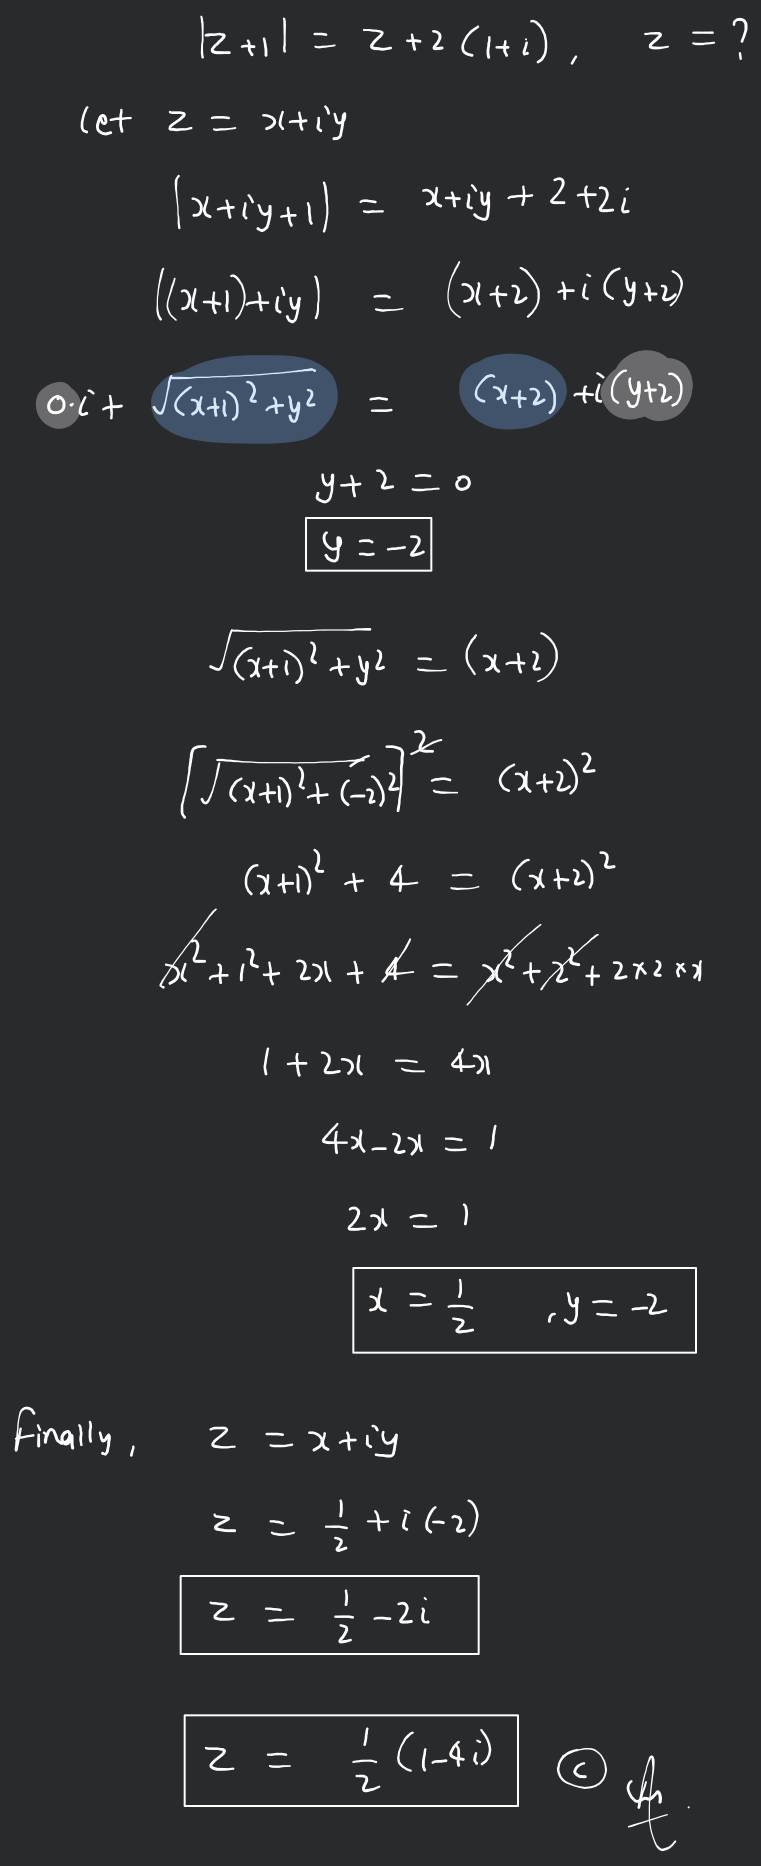 |z+1| = z+2(1+i), z = ?
let z = x+iy
|x+iy+1| = x+iy+2+2i
|(x+1)+iy| = (x+2)+i(y+2)
0·i+ √((x+1)²+y²) = (x+2)+i(y+2)
y+2=0
y=-2
√((x+1)²+y²) = (x+2)
[√((x+1)²+(-2)²)]² = (x+2)²
(x+1)²+4 = (x+2)²
x²+1²+2x+4 = x²+2²+2×2×x
1+2x = 4x
4x-2x = 1
2x = 1
x = 1/2 , y = -2
Finally, z = x+iy
z = 1/2 +i(-2)
z = 1/2 -2i
z = 1/2 (1-4i) ©